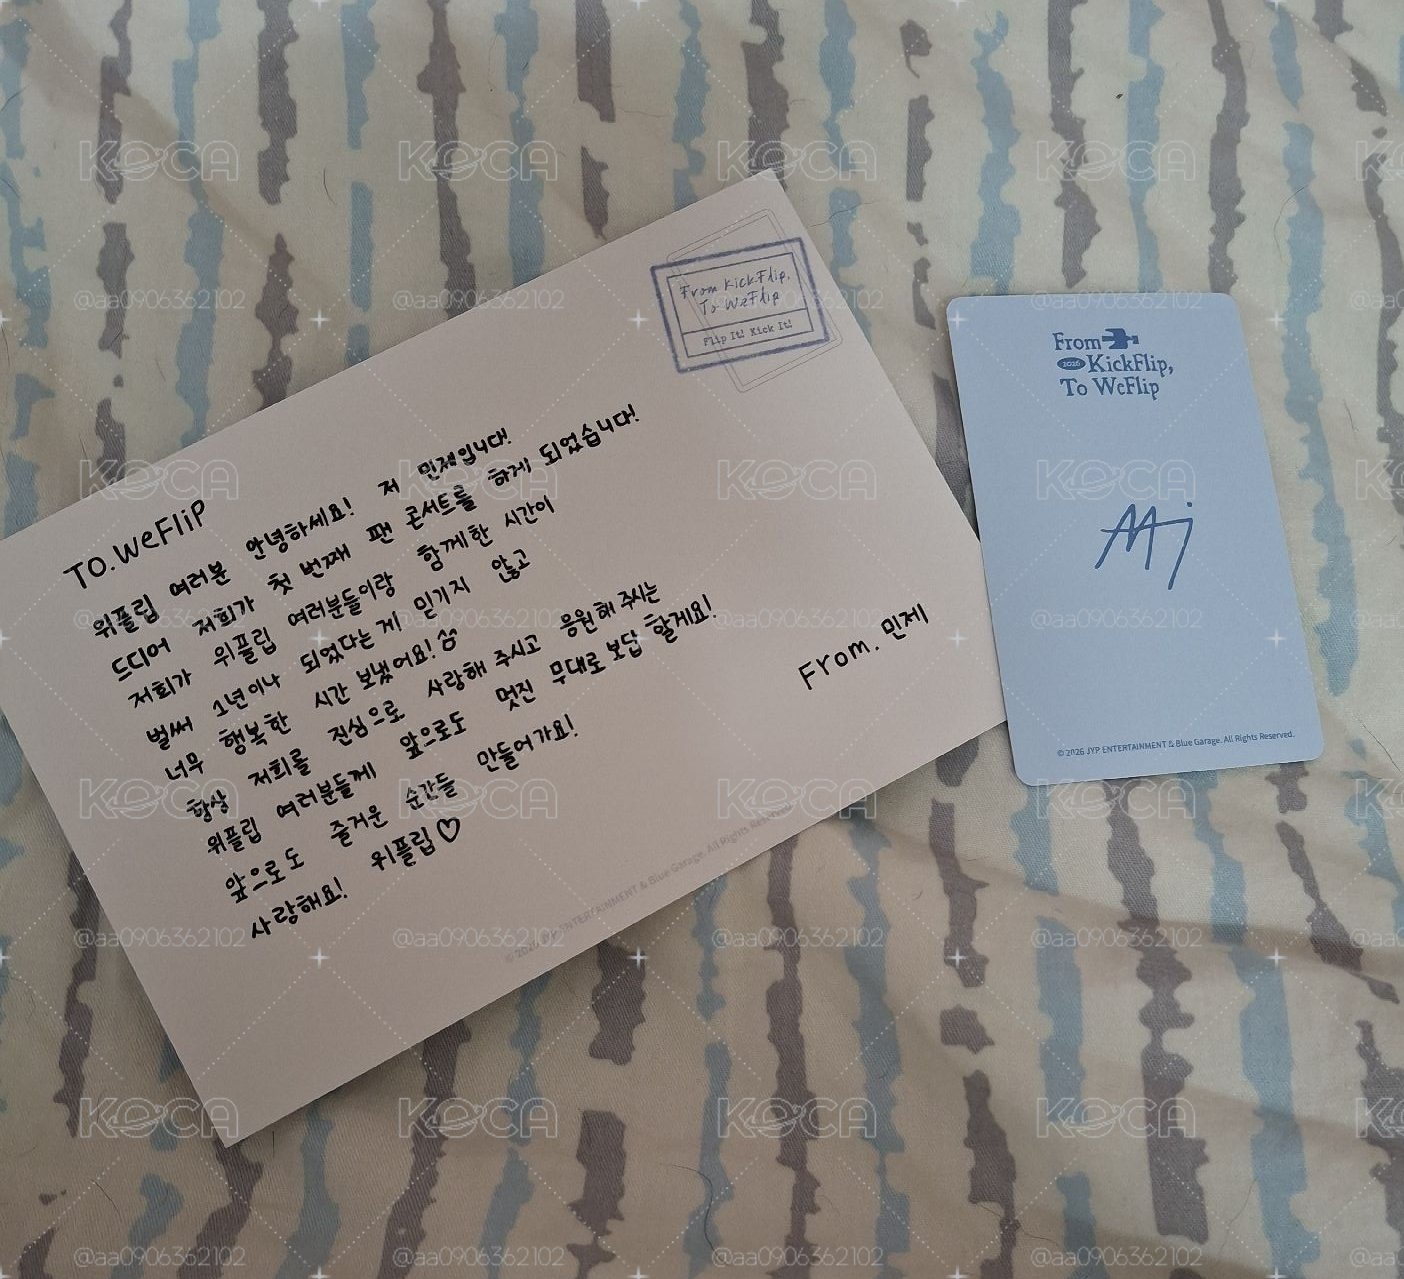 From KickFlip,
To WeFlip
Flip It! Kick It!
TO. WeFliP
위플립 여러분 안녕하세요! 저 민제입니다!
드디어 저희가 첫 번째 팬 콘서트를 하게 되었습니다!
저희가 위플립 여러분들이랑 함께한 시간이
벌써 1년이나 되었다는게 믿기지 않고
너무 행복한 시간 보냈어요!
항상 저희를 진심으로 사랑해 주시고 응원해 주시는
위플립 여러분들께 앞으로도 멋진 무대로 보답 할게요!
앞으로도 즐거운 순간들 만들어가요!
사랑해요! 위플립♡
From. 민제
© 2026 JYP ENTERTAINMENT & Blue Garage. All Rights Reserved.
From
2026 KickFlip,
To WeFlip
Mj
© 2026 JYP ENTERTAINMENT & Blue Garage. All Rights Reserved.
KOCA
@aa0906362102